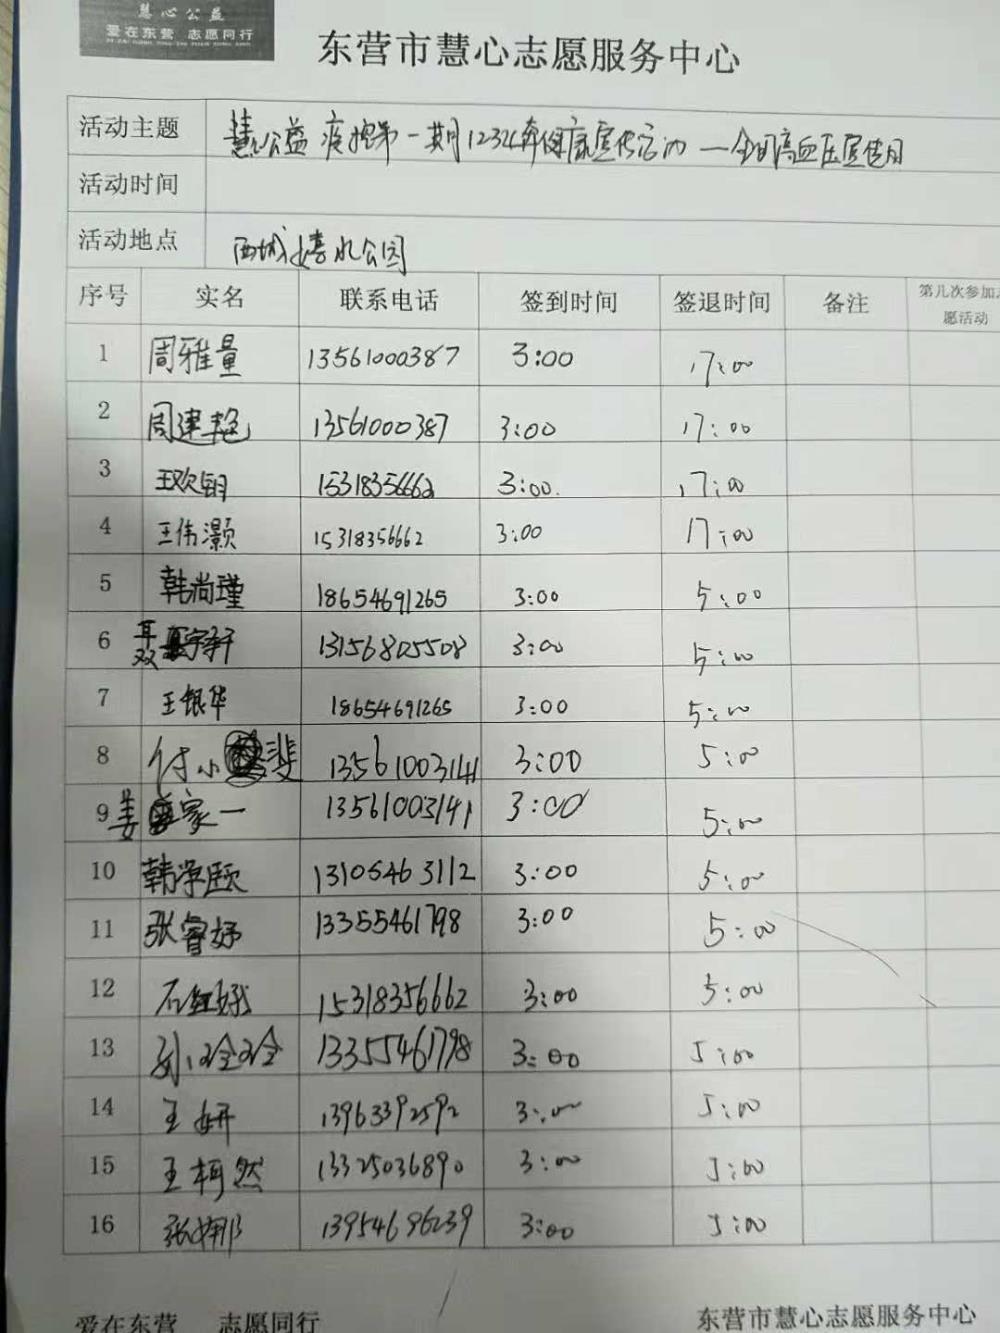 慧心公益
爱在东营 志愿同行
东营市慧心志愿服务中心
活动主题 慧心公益 疫控第一期12320健康宣传活动—全国高血压宣传日
活动时间
活动地点 西城嬉水公园
序号 实名 联系电话 签到时间 签退时间 备注 第几次参加志
愿活动
1 周雅量 13561000387 3:00 17:00
2 周建艳 13561000387 3:00 17:00
3 王欢钥 15318356662 3:00. 17:00
4 王伟灏 15318356662 3:00 17:00
5 韩尚瑾 18654691265 3:00 5:00
6 宇轩 13156805508 3:00 5:00
7 王银华 18654691265 3:00 5:00
8 付小斐 13561003141 3:00 5:00
9 姜家一 13561003141 3:00 5:00
10 韩淳颐 13105463112 3:00 5:00
11 张睿妤 13355461798 3:00 5:00
12 石红娥 15318356662 3:00 5:00
13 孙玲玲 13355461798 3:00 5:00
14 王妍 13963392592 3:00 5:00
15 王柯然 13325036890 3:00 5:00
16 张娜 13954696239 3:00 5:00
爱在东营 志愿同行 东营市慧心志愿服务中心